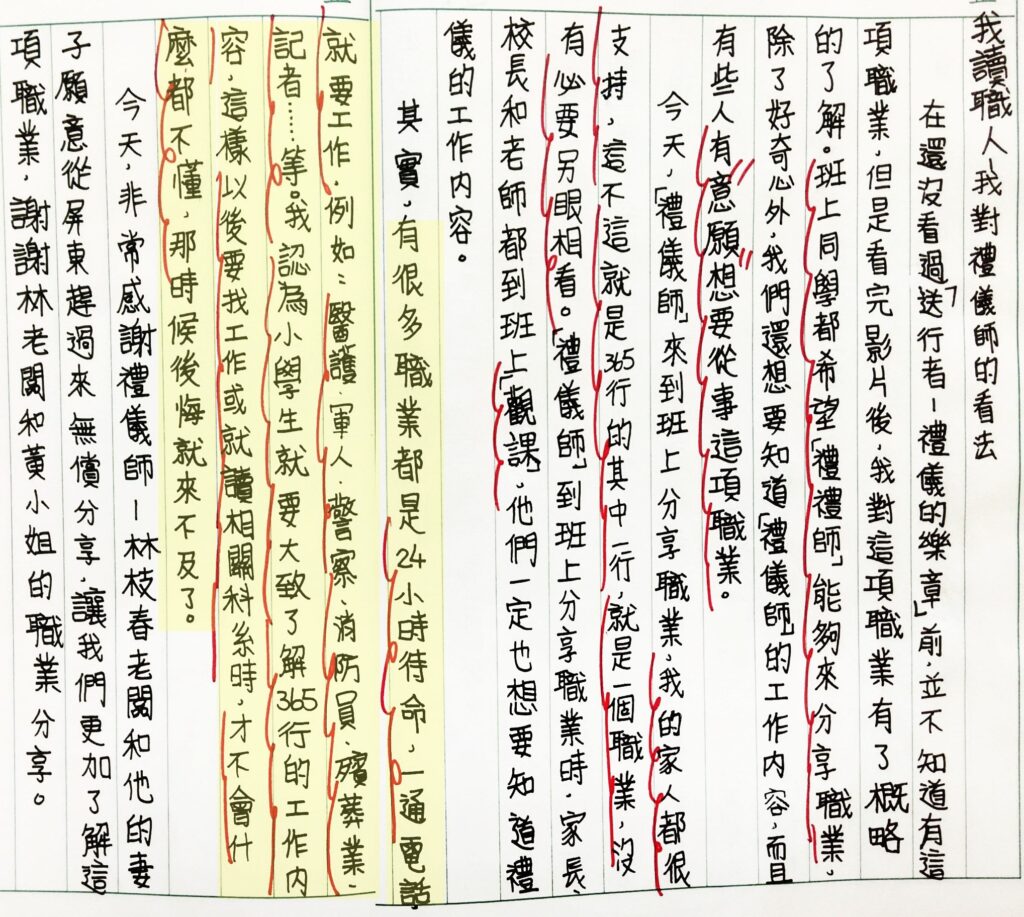 我讀職人我對禮儀師的看去
在還沒看過「送行者－禮儀的樂章」前，並不知道有這
項職業，但是看完影片後，我對這項職業有了概略
的了解。班上同學都希望「禮禮師」能夠來分享職業，
除了好奇心外，我們還想要知道「禮儀師」的工作內容，而且
有些人有"意願"想要從事這項職業。
今天，「禮儀師」來到班上分享職業，我的家人都很
支持，這不這就是365行的其中一行，就是一個職業，沒
有必要另眼相看。「禮儀師」到班上分享職業時，家長、
校長和老師都到班上「觀課」，他們一定也想要知道禮
儀的工作內容。
其實，有很多職業都是24小時待命，一通電話
就要工作，例如：醫護、軍人、警察、消防員、殯葬業、
記者……等。我認為小學生就要大致了解365行的工作內
容，這樣以後要找工作或就讀相關科系時，才不會什
麼都不懂，那時候後悔就來不及了。
今天，非常感謝禮儀師－林枝春老闆和他的妻
子願意從屏東趕過來無償分享，讓我們更加了解這
項職業，謝謝林老闆和黃小姐的職業分享。